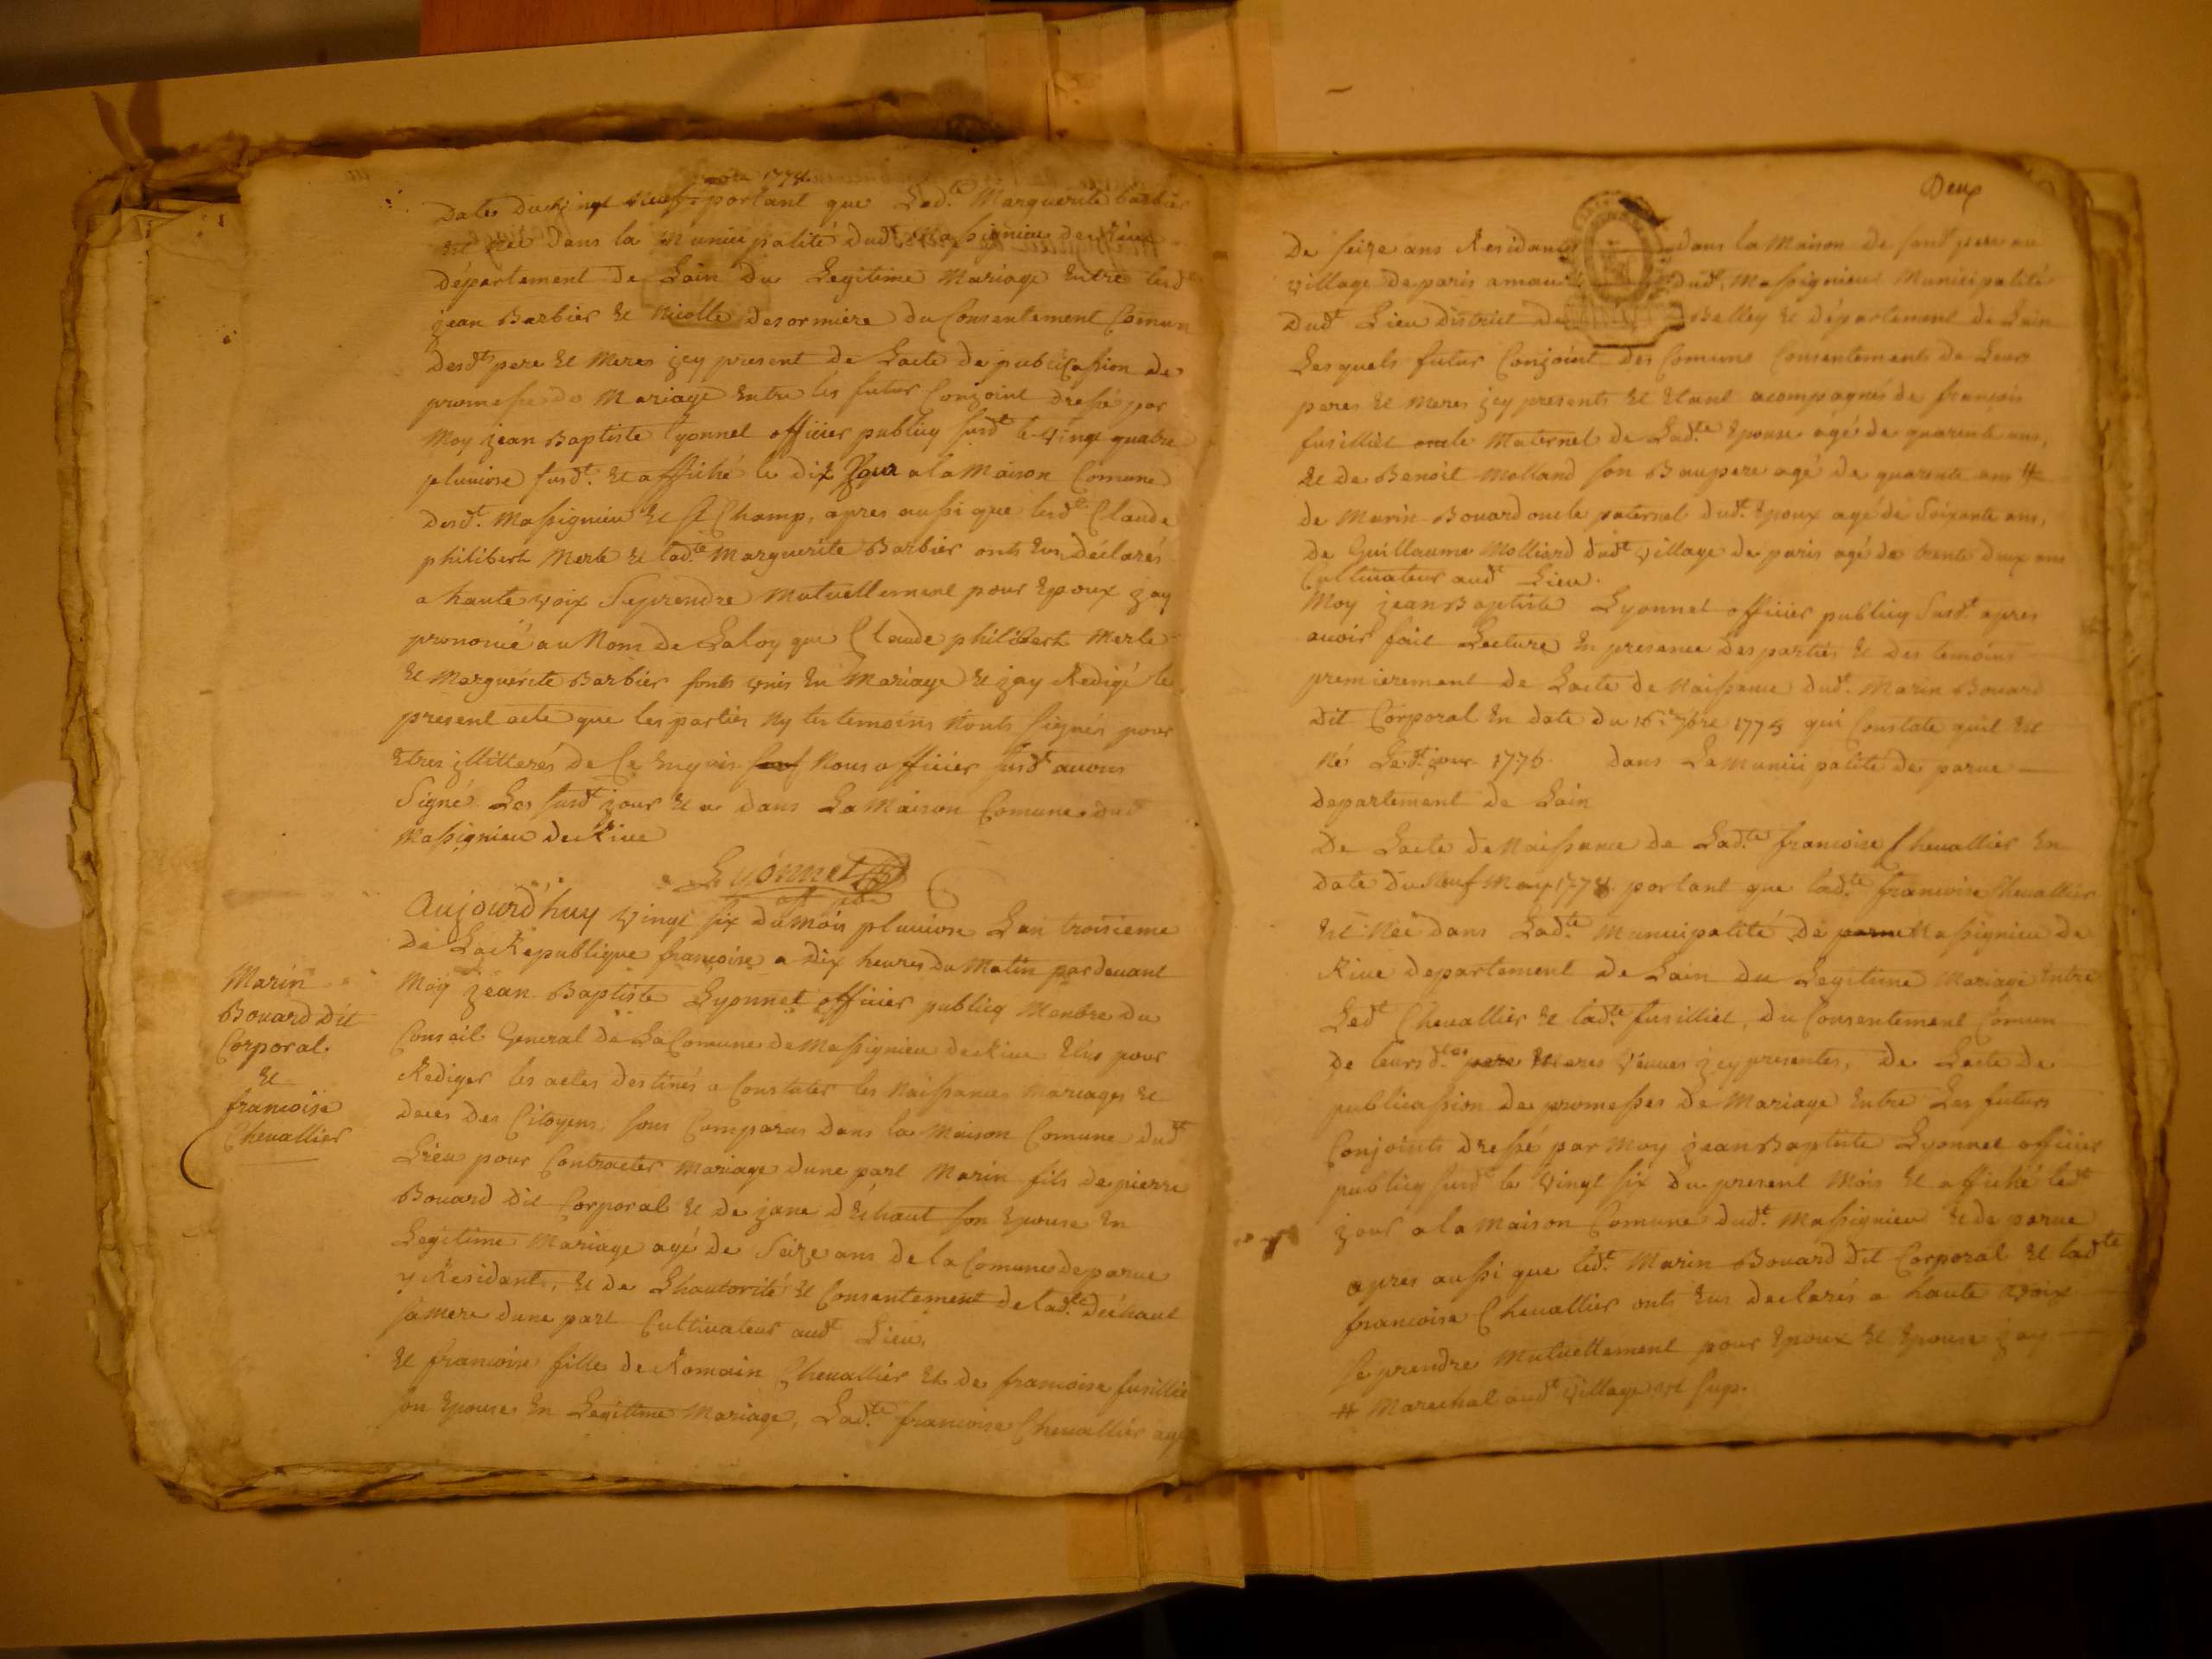 aoux 1774.
Dates du vingt neuf portant que Lad.te Marguerite barbier
Est née dans la Municipalité dud.t Massignieu de Rive
département de Lain du Legitime Mariage Entre lesd.ts
jean Barbier Et Nicolle Desormiere du Consentement Comun
desd.ts pere Et Meres jcy present de Lacte de publicassion de
promesse de Mariage Entre les futur Conjoint dressé par
Moy jean Baptiste Lyonnet officier publicq susd.t le vingt quatre
pluviose susd.t Et affiché le dix jour a la Maison Comune
desd.t Massignieu Et St Champ, apres aussi que lesd.t Claude
philibert Merle Et lad.te Marguerite Barbier onts Eus déclarés
a haute voix Seprendre Mutuellement pour Epoux jay
prononcé au Nom de Laloy que Claude philibert Merle
Et Marguerite Barbier sonts unis En Mariage Et jay Redigé le
present acte que les parties Ny les temoins Nonts signés pour
Etres jllitterés de Ce Enquis sauf Nous officier susd.t avons
Signé Les susd.t jour Et a dans La Maison Comune dud.t
Massignieu de Rive
Lyonnet
off. pub.
Marin
Bouard dit
Corporal
Et
francoise
Chevallier
Aujourd'huy vingt six du mois pluviose Lan troisieme
de La Republique francoise a dix heures du Matin pardevant
Moy jean Baptiste Lyonnet officier publicq Menbre du
Conseil General de La Comune de Massignieu de Rive Elus pour
Rediger les actes destinés a Constater les Naissances Mariages Et
deces des Citoyens sons Comparus dans la Maison Comune dud.t
Lieu pour Contracter Mariage dune part Marin fils de pierre
Bouard dit Corporal Et de jane déchaut son Epouse En
Legitime Mariage agé de Seize ans de la Comune de parve
y Residant, Et de Lhautorité Et Consentement de lad.te déchaut
sa mere dune part Cultivateur aud.t Lieu.
Et francoise fille de Romain Chevallier Et de francoise fusillie
son Epouse En Legittime Mariage, Lad.te francoise Chevallier agé
Deux
de seize ans Residante dans la Maison de sond.t pere au
village de paris dud.t Massignieu Municipalité
dud.t Lieu district de Belley Et département de Lain
Lesquels futur Conjoint des Comuns Consentements de Leurs
peres Et Meres jcy presents Et Etant acompagnés de francois
fusilliet oncle Maternel de Lad.te Epouse agé de quarente ans,
Et de Benoit Molland son Beaupere agé de quarente ans #
de Marin Bouard oncle paternel dud.t Epoux agé de Soixante ans,
de Guillaume Molliard dud.t village de paris agé de trente deux ans
Cultivateur aud.t Lieu.
Moy jean Baptiste Lyonnet officier publicq Susd.t apres
avoir fait Lecture En presance des parties Et des temoins
premierement de Lacte de Naissance dud.t Marin Bouard
dit Corporal En date du 16.e 7bre 1775 qui Constate quil Est
Né Led.t jour 1775 dans La municipalité de parve
departement de Lain
De Lacte de Naissance de Lad.te francoise Chevallier En
date du Neuf May 1778 portant que lad.te francoise Chevallier
Est Neé dans Lad.te Municipalité de parve Massignieu de
Rive departement de Lain du Legitime Mariage Entre
Led.t Chevallier Et lad.te fusilliet, du Consentement Comun
de leursd.tes pere Meres Veuves jcy presentes, de Lacte de
publicassion de promesses de Mariage Entre Les futurs
Conjoints dressé par Moy jean Baptiste Lyonnet officier
publicq susd.t le vingt six du present Mois Et affiché led.t
jour a la Maison Comune dud.t Massignieu Et de parve
apres aussi que led.t Marin Bouard dit Corporal Et lad.te
francoise Chevallier onts Eus declarés a haute voix
Se prendre Mutuellement pour Epoux Et Epouse jay
# Marechal aud.t village